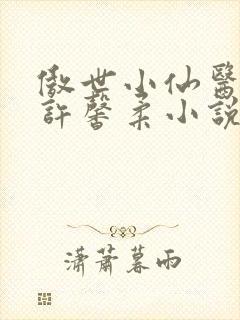 傲世小仙醫
許馨柔小說
瀟蕭暮雨